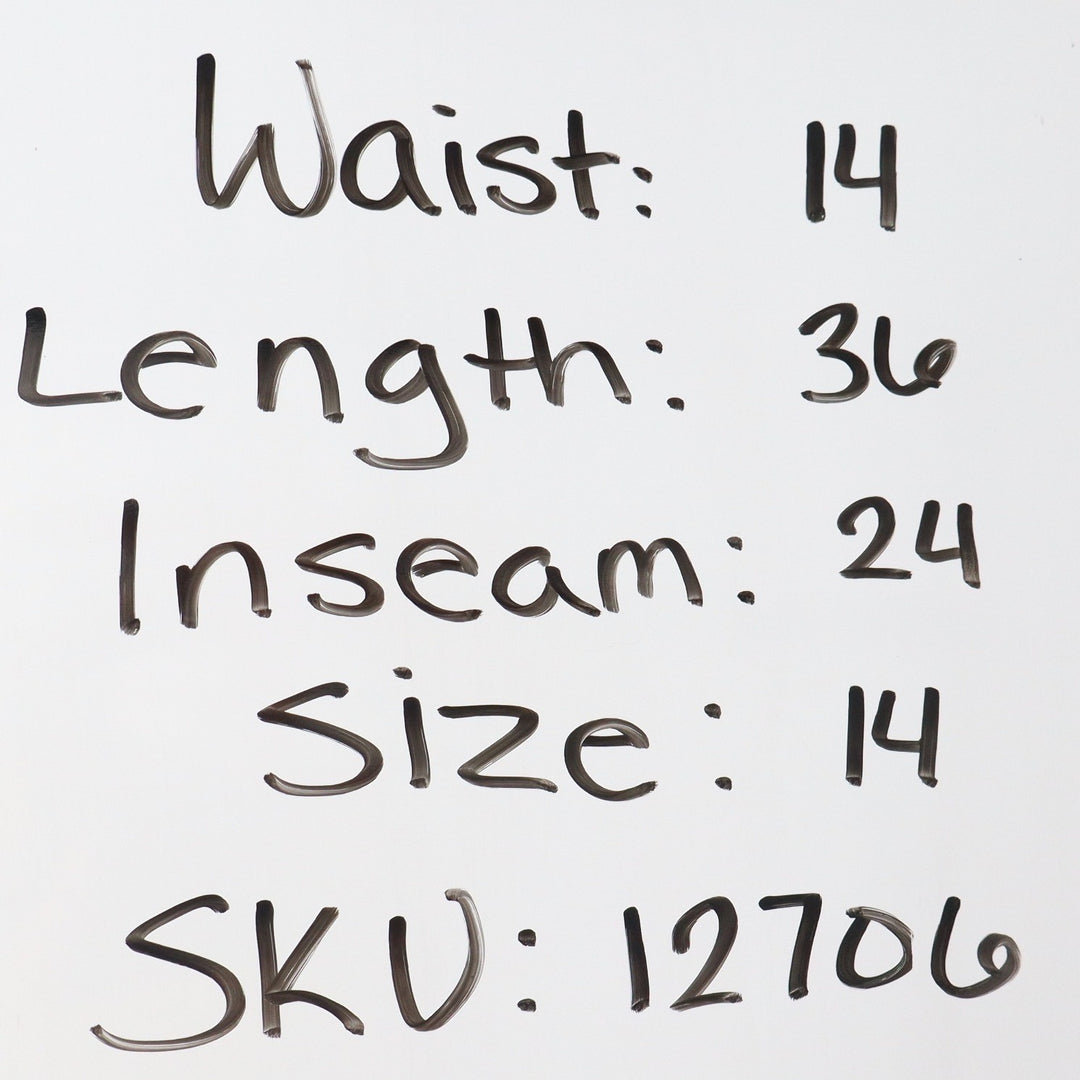 Waist: 14
Length: 36
Inseam: 24
Size: 14
SKU: 12706